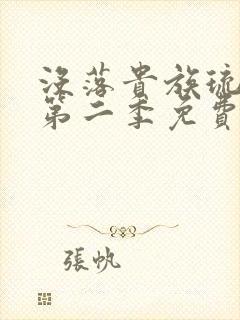 没落貴族琉
第二季免費
張帆